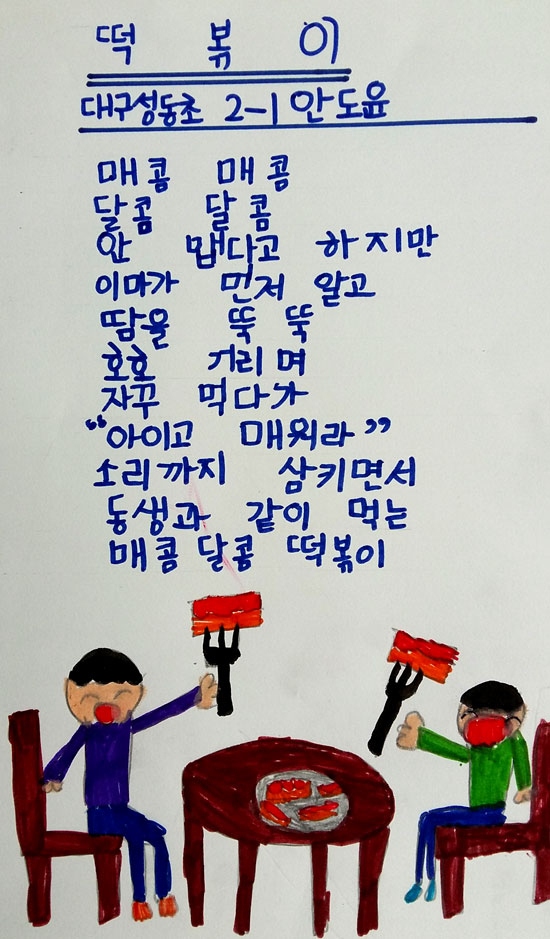 떡 볶 이
대구성동초 2-1 안도윤
매콤 매콤
달콤 달콤
안 맵다고 하지만
이마가 먼저 알고
땀을 뚝 뚝
호호 거리며
자꾸 먹다가
“아이고 매워라”
소리까지 삼키면서
동생과 같이 먹는
매콤 달콤 떡볶이